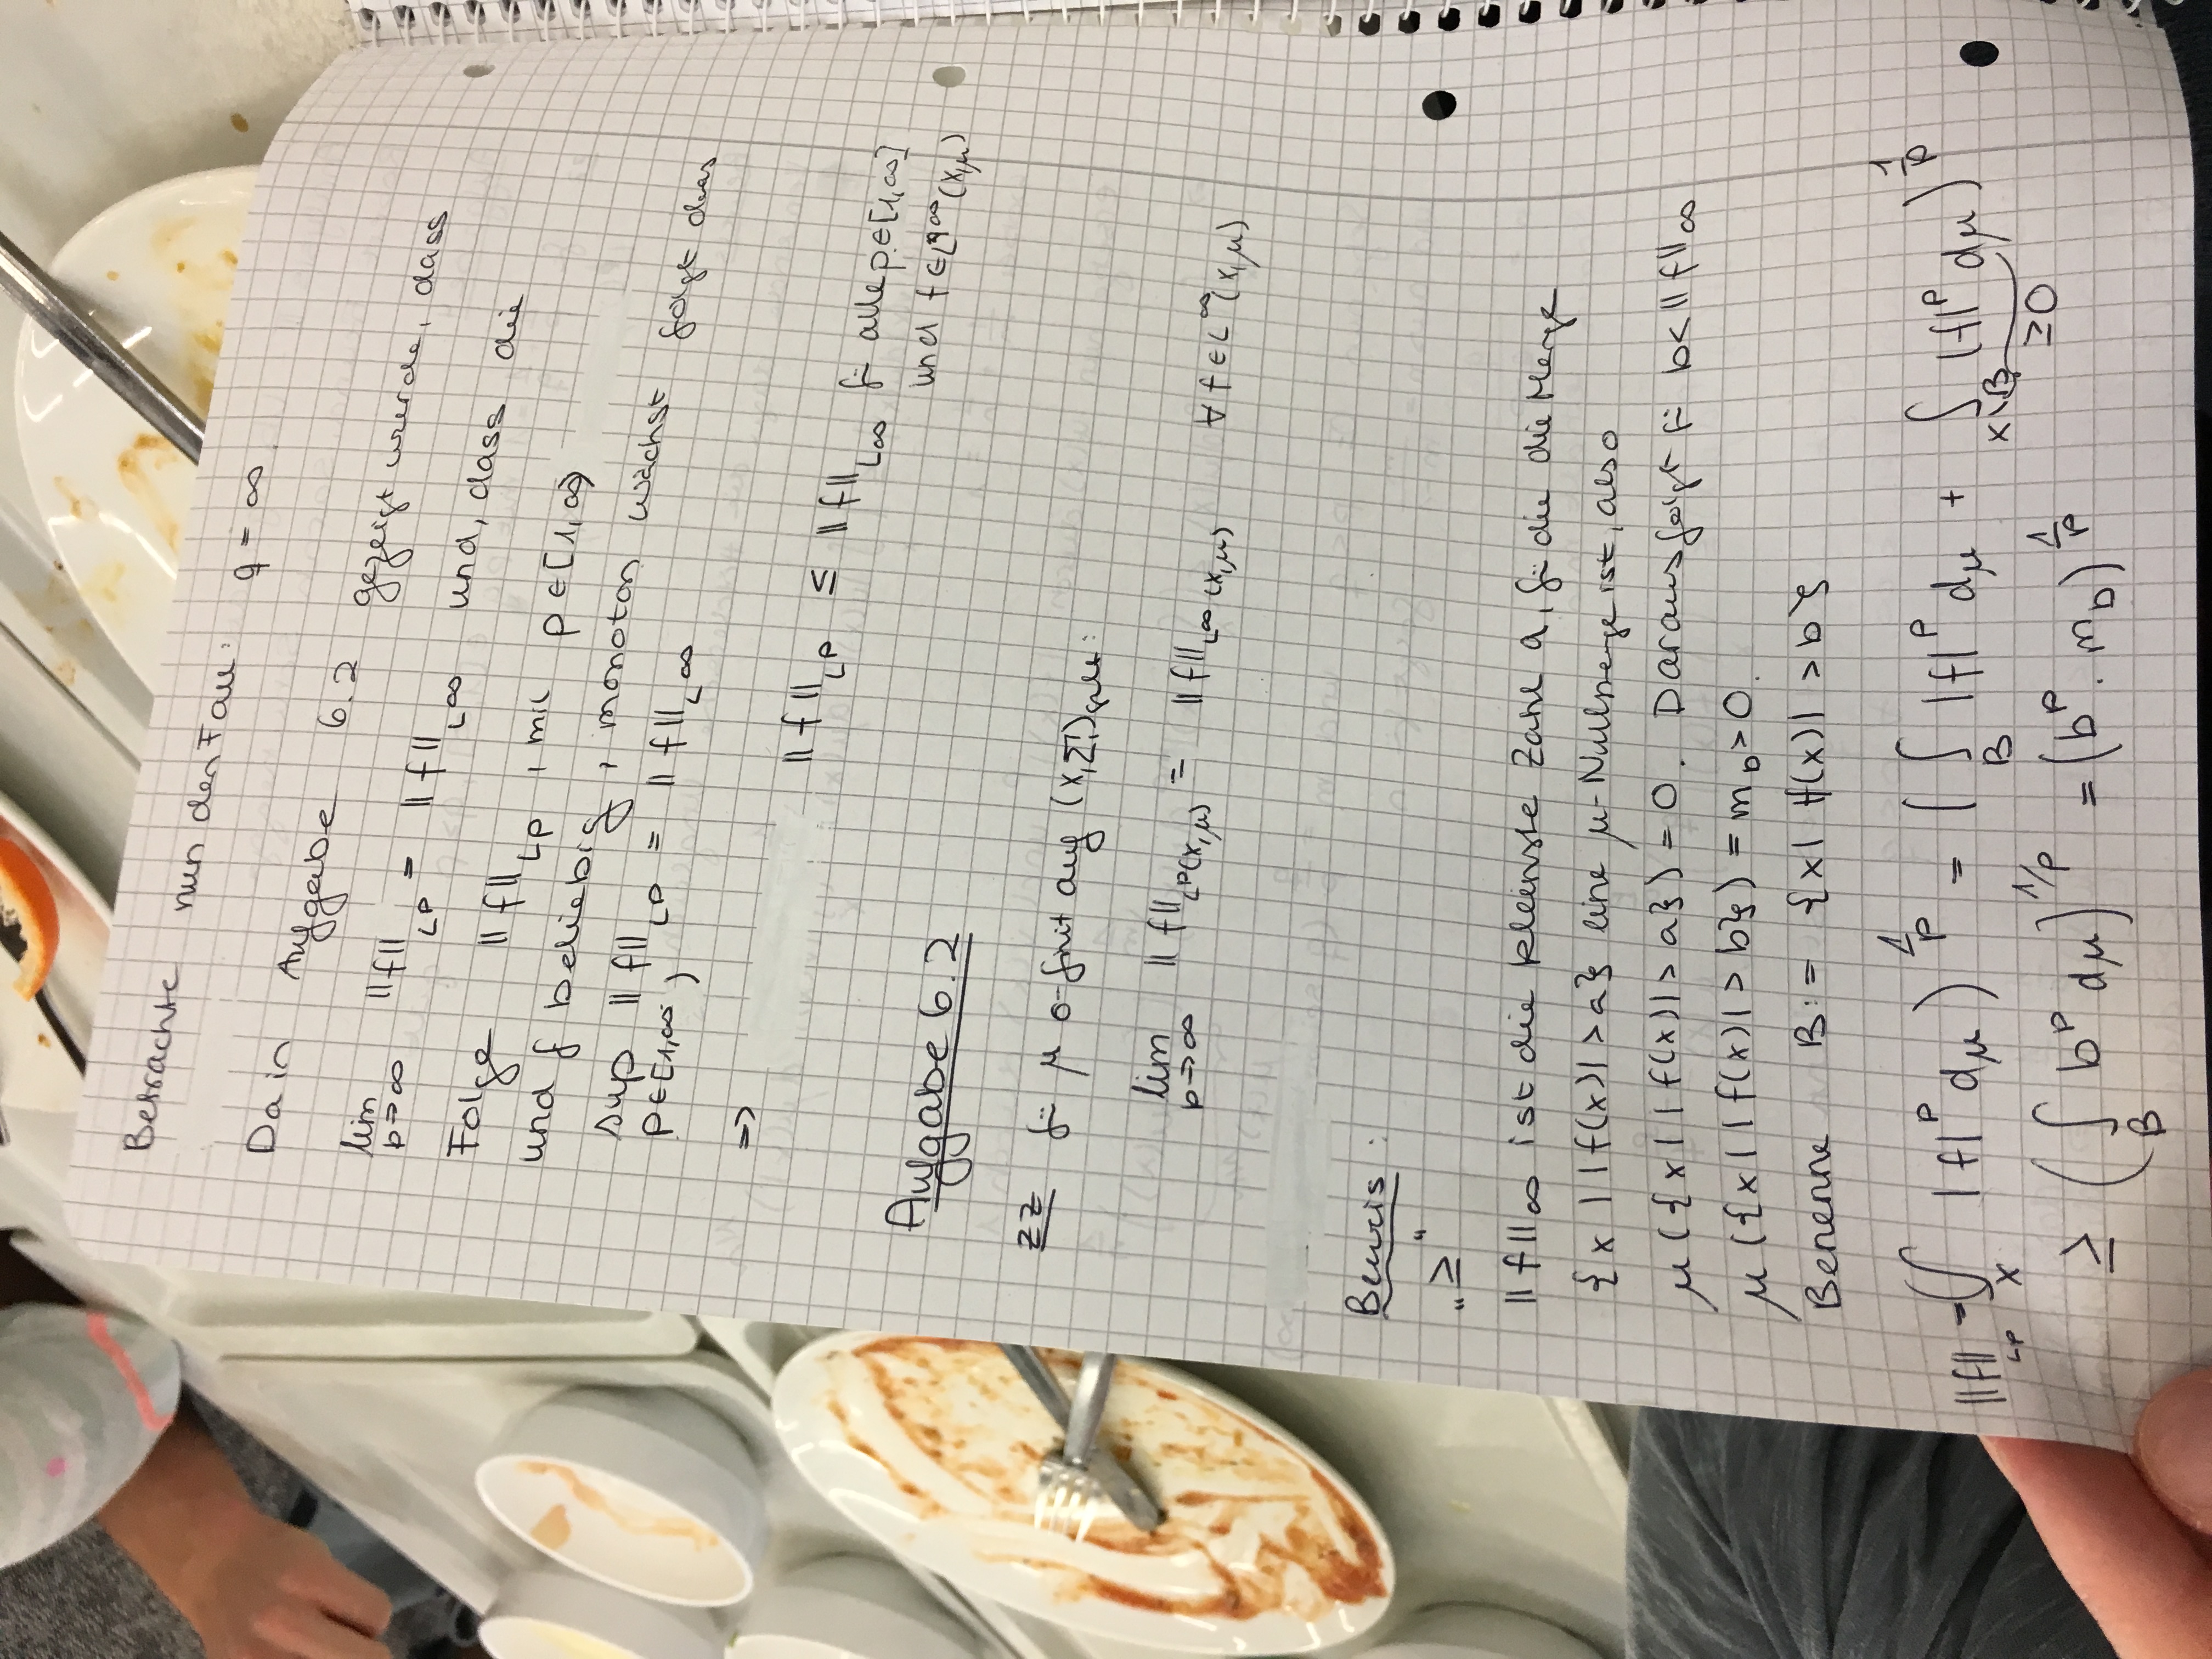 Betrachte nun den Fall: q = ∞
Da in Aufgabe 6.2 gezeigt wurde, dass
lim p→∞ ||f||_{L^p} = ||f||_{L^∞} und, dass die
Folge ||f||_{L^p}, mit p∈[1,∞)
und f beliebig, monoton wächst folgt das
sup p∈[1,∞) ||f||_{L^p} = ||f||_{L^∞}
=> ||f||_{L^p} ≤ ||f||_{L^∞} für alle p∈[1,∞]
und f∈L^∞(X,μ)
Aufgabe 6.2
zz für μ σ-finit auf (X,Σ) gilt:
lim p→∞ ||f||_{L^p(X,μ)} = ||f||_{L^∞(X,μ)} ∀ f∈L^∞(X,μ)
Beweis:
"≥"
||f||_∞ ist die kleinste Zahl a, für die die Menge
{x | |f(x)| > a} eine μ-Nullmenge ist, also
μ({x | |f(x)| > a}) = 0. Daraus folgt für b < ||f||_∞
μ({x | |f(x)| > b}) = m_b > 0.
Benenne B := {x | |f(x)| > b}
||f||_{L^p} = (∫_X |f|^p dμ)^{1/p} = (∫_B |f|^p dμ + ∫_{X\B} |f|^p dμ)^{1/p}
≥0
≥ (∫_B b^p dμ)^{1/p} = (b^p · m_b)^{1/p}